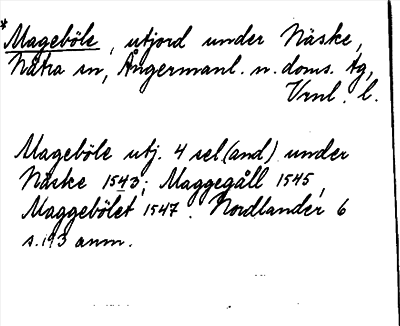 *Mageböle, utjord under Näske,
Nätra sn, Ångermanl. n. doms. tg,
Vrnl. l.
Mageböle utj. 4 sel (and) under
Näske 1543; Maggegåll 1545,
Maggebölet 1547. Nordlander 6
s. 193 anm.